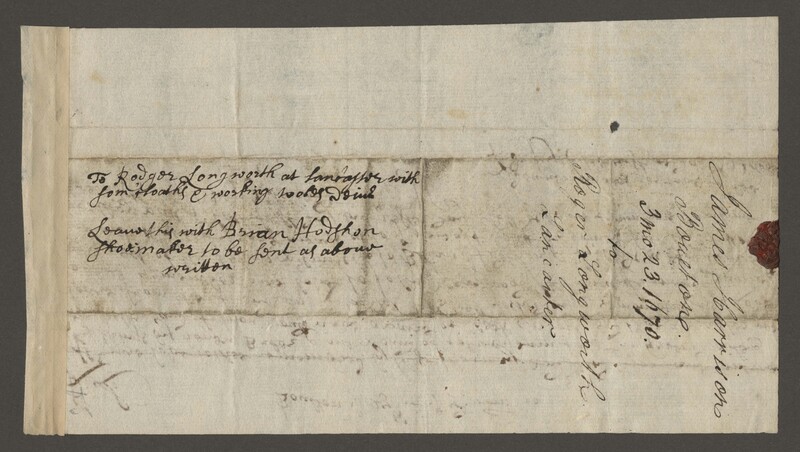 To Rodger Longworth at Lancaster with
som Cloaths & working tooles
Leave this with Brian Hodshon
shoemaker to be sent as above
written
James Harrison
Boultone.
3 mo 23 1670.
to
Roger Longworth.
Lancaster.